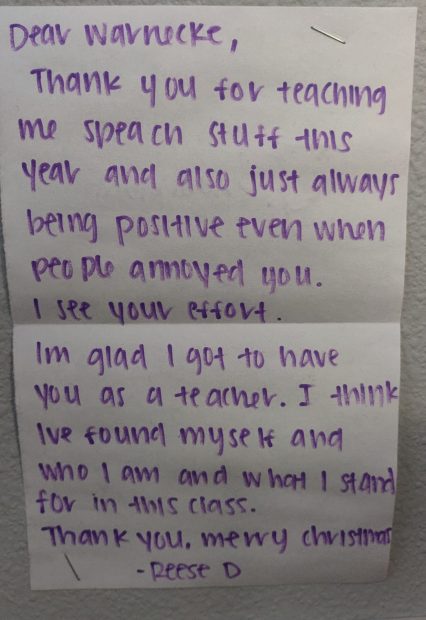 Dear Warnecke,
Thank you for teaching
me speach stuff this
year and also just always
being positive even when
people annoyed you.
I see your effort.
Im glad I got to have
you as a teacher. I think
Ive found myself and
who I am and what I stand
for in this class.
Thank you. merry christmas
-Reese D